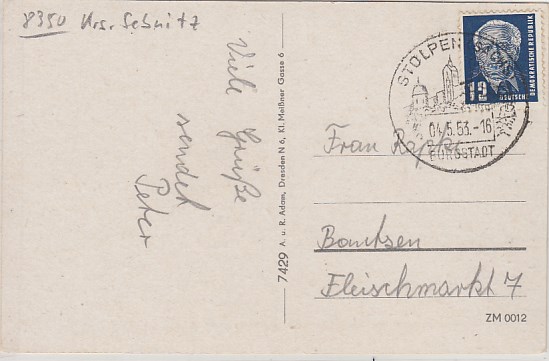 8350 Krs. Sebnitz
Viele Grüße
sendet
Peter
7429 A. u. R. Adam, Dresden N 6, Kl. Meißner Gasse 6
STOLPEN
04.5.53.-16
BURGSTADT
12
DEUTSCHE
DEMOKRATISCHE REPUBLIK
Frau
Bautsen
Fleischmarkt 7
ZM 0012